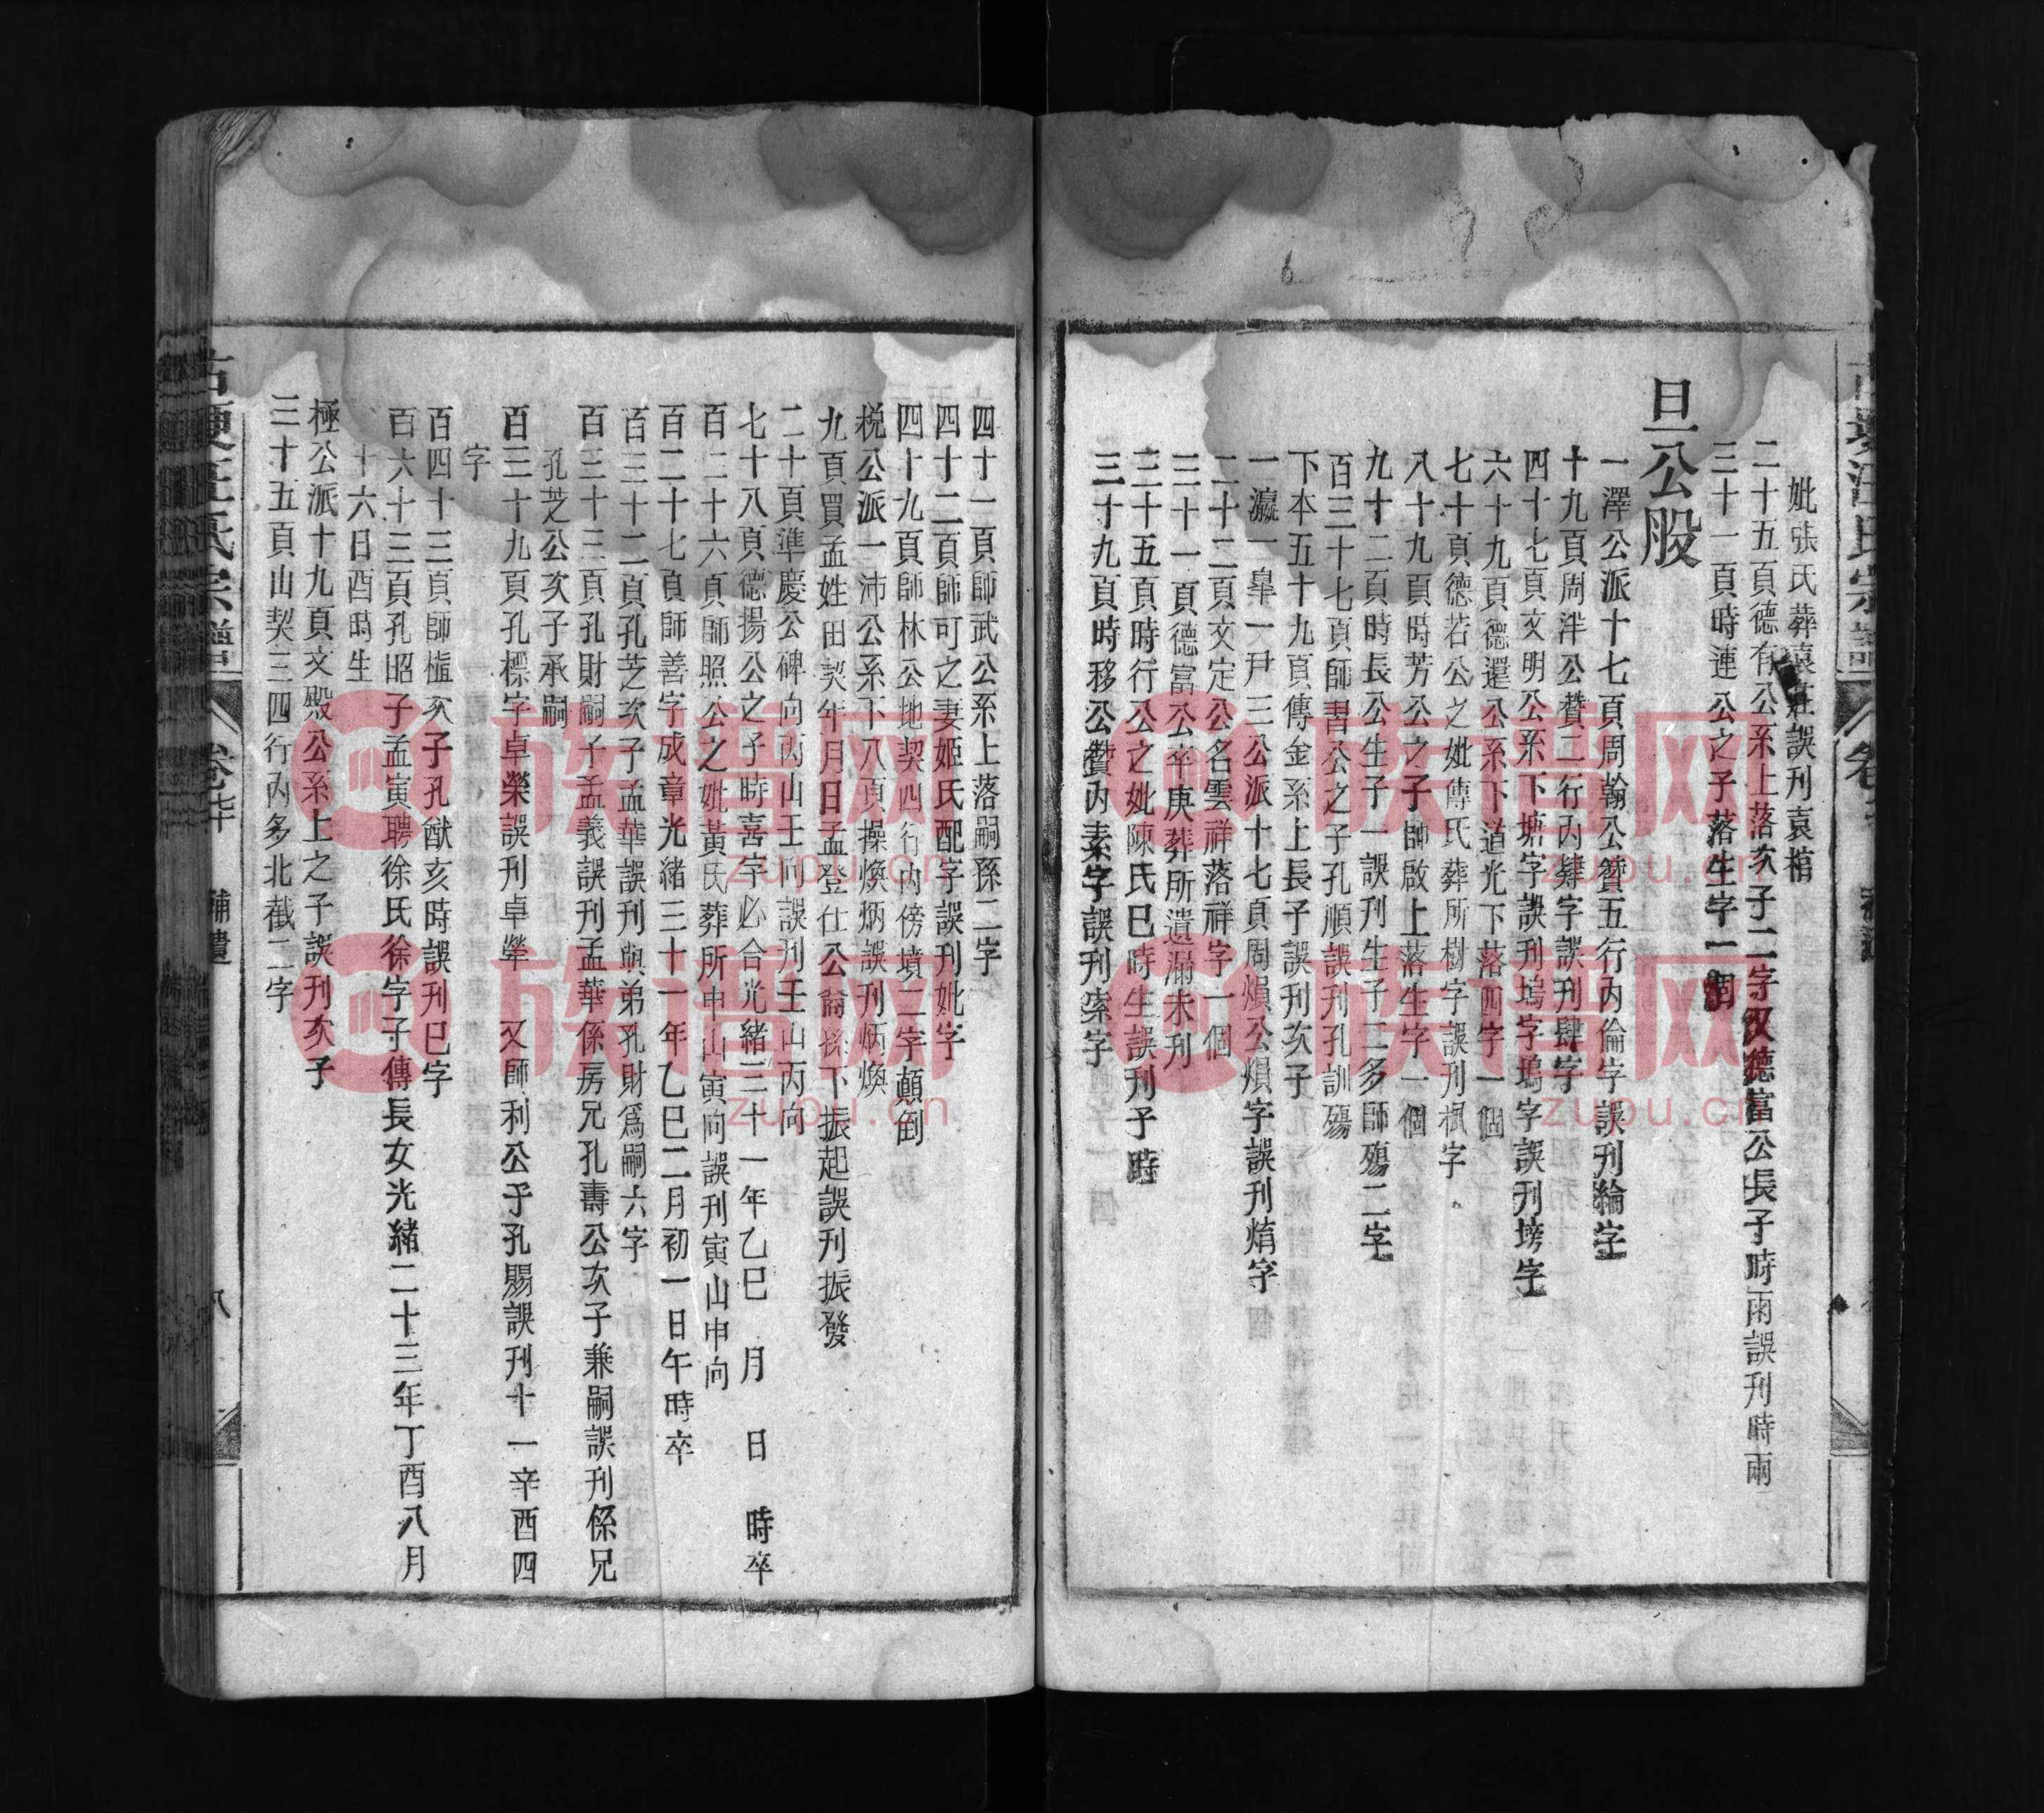 妣張氏葬袁莊誤刋袁棺
二十五頁德有公系上落次子二字又德富公長子時雨誤刋時兩
三十一頁時連公之子落生字一個
旦公股
一澤公派十七頁周翰公贊五行內倫字誤刋綸字
十九頁周泮公贊二行內肄字誤刋肆字
四十七頁文明公系下塘字誤刋塢字塢字誤刋塝字
六十九頁德還公系下道光下落四字一個
七十頁德若公之妣傳氏葬所樹字誤刋楓字
八十九頁時芳公之子師啟上落生字一個
九十二頁時長公生子一誤刋生子二多師殤二字
百三十七頁師書公之子孔順誤刋孔訓殤
下本五十九頁傳金系上長子誤刋次子
一瀛一臯一尹三公派十七頁周熉公熉字誤刋焇字
二十二頁文定公名雲祥落祥字一個
三十一頁德富公卒庚葬所遺漏未刋
三十五頁時行公之妣陳氏巳時生誤刋子時
三十九頁時移公贊內素字誤刋索字
四十一頁師武公系上落嗣孫二字
四十二頁師可之妻姬氏配字誤刋妣字
四十九頁師林公地契四行內傍墳二字顛倒
税公派一沛公系下八頁操煥炳誤刋炳煥
九頁買孟姓田契年月日孟登仕公裔孫下振起誤刋振發
二十頁準慶公碑向丙山壬向誤刋壬山丙向
七十八頁德揚公之子時喜字必合光緒三十一年乙巳 月 日 時卒
百二十六頁師照公之妣黃氏葬所申山寅向誤刋寅山申向
百二十七頁師善字成章光緒三十一年乙巳二月初一日午時卒
百三十二頁孔芝次子孟華誤刋與弟孔財爲嗣六字
百三十三頁孔財嗣子孟義誤刋孟華係房兄孔壽公次子兼嗣誤刋係兄
孔芝公次子承嗣
百三十九頁孔標字卓榮誤刋卓犖 又師利公子孔賜誤刋十一辛酉四
字
百四十三頁師植次子孔猷亥時誤刋巳字
百六十三頁孔昭子孟寅聘徐氏徐字子傳長女光緒二十三年丁酉八月
十六日酉時生
極公派十九頁文殿公系上之子誤刋次子
三十五頁山契三四行內多北截二字
氏宗譜
補遺
八
族谱网
zupu.cn
族谱网
zupu.cn
族谱网
zupu.cn
族谱网
zupu.cn